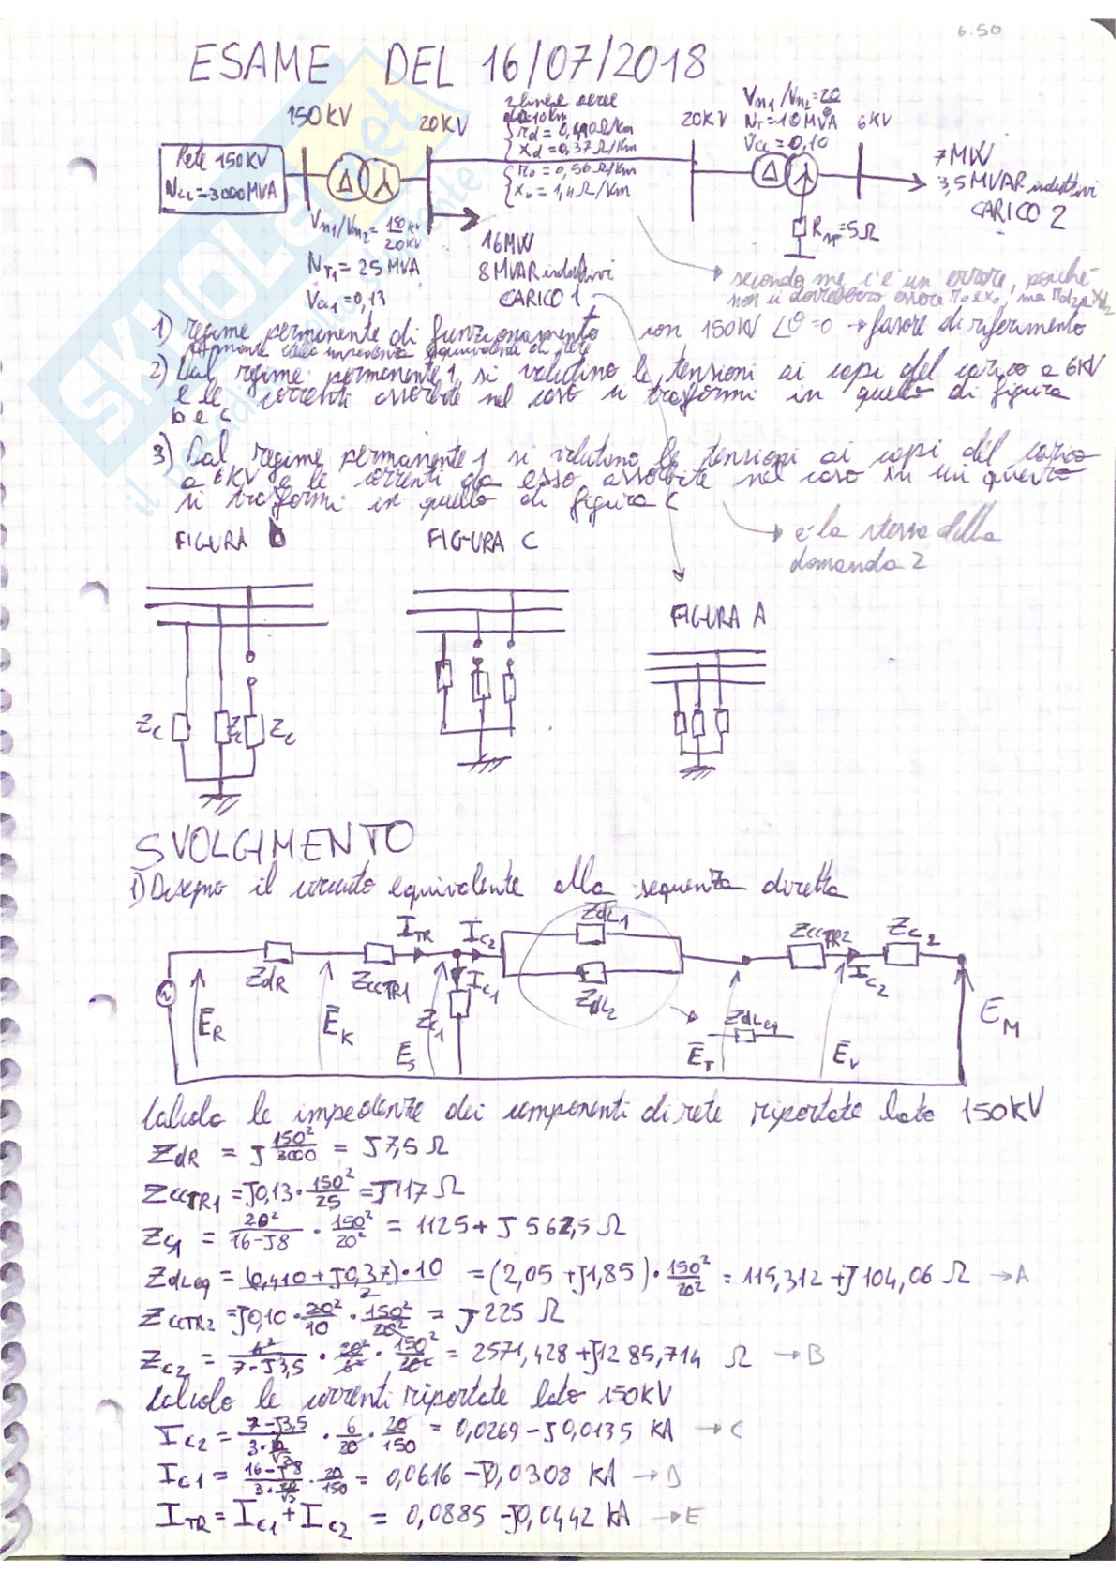 6.50
ESAME DEL 16/07/2018
150KV
20KV
2 linee aeree
da 10km
rd = 0,410Ω/Km
xd = 0,37Ω/Km
r0 = 0,56Ω/Km
x0 = 1,4Ω/Km
20KV
Vn1/Vn2 = 20
NT = 10MVA
Vcc = 0,10
6KV
Rete 150KV
Ncc = 3000MVA
Δ
Δ
7MW
3,5MVAR induttivi
CARICO 2
Vn1/Vn2 = 150KV/20KV
NT1 = 25MVA
Vcc1 = 0,13
16MW
8MVAR induttivi
CARICO 1
5Ω
secondo me c'è un errore, poiché
non ci dovrebbero essere r0 e x0, ma
1) regime permanente di funzionamento con 150KV ∠θ=0 → fasore di riferimento
impedenza equivalente di rete
2) Dal regime permanente 1, si valutino le tensioni ai capi del carico a 6KV
e le correnti assorbite nel caso si trasformi in quello di figura
b e c
3) Dal regime permanente 1 si valutino le tensioni ai capi del carico
a 6KV e le correnti da esso assorbite nel caso in cui questo
si trasformi in quello di figura C
→ è la stessa della
domanda 2
FIGURA b
FIGURA C
FIGURA A
Zc
Zc
Zc
SVOLGIMENTO
1) Disegno il circuito equivalente alla sequenza diretta
ZdR
ZccTR1
ITR
IC2
ZdL1
ZdL2
ZccTR2
ZC2
IC2
IC1
ZC1
ZdLeq
ĒR
ĒK
Ēs
ĒT
ĒV
ĒM
Calcolo le impedenze dei componenti di rete riportate lato 150KV
ZdR = J 150²/3000 = J7,5 Ω
ZccTR1 = J0,13 · 150²/25 = J117 Ω
ZC1 = 20²/(16-J8) · 150²/20² = 1125 + J562,5 Ω
ZdLeq = (0,410 + J0,37)·10/2 = (2,05 + J1,85) · 150²/20² = 115,312 + J104,06 Ω → A
ZccTR2 = J0,10 · 20²/10 · 150²/20² = J225 Ω
ZC2 = 6²/(7-J3,5) · 20²/6² · 150²/20² = 2571,428 + J1285,714 Ω → B
Calcolo le correnti riportate lato 150KV
IC2 = (7-J3,5)/(3·6/√3) · 6/20 · 20/150 = 0,0269 - J0,0135 KA → C
IC1 = (16-J8)/(3·20/√3) · 20/150 = 0,0616 - J0,0308 KA → D
ITR = IC1 + IC2 = 0,0885 - J0,0442 KA → E